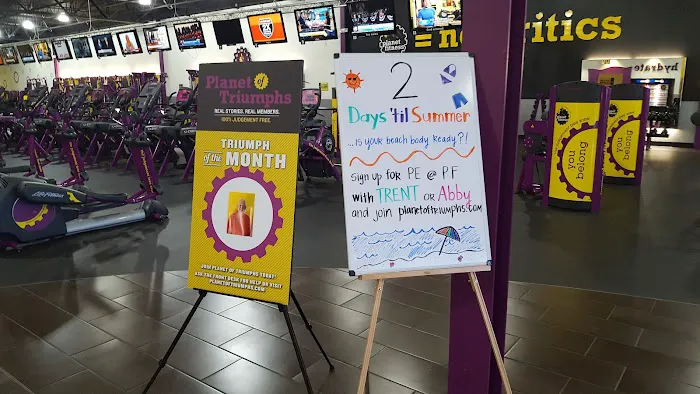 PLANET
OF
TRIUMPHS
REAL STORIES. REAL MEMBERS.
100% JUDGEMENT FREE.
TRIUMPH
of the MONTH
JOIN PLANET OF TRIUMPHS TODAY!
ASK THE FRONT DESK FOR HELP OR VISIT
PLANETOFTRIUMPHS.COM
2
Days 'til Summer
...is your beach body Ready?!
sign up for PE @ PF
with TRENT or Abby
and join planetoftriumphs.com
planet
fitness
= no
ritics
hydrate
you
belong
you
belong